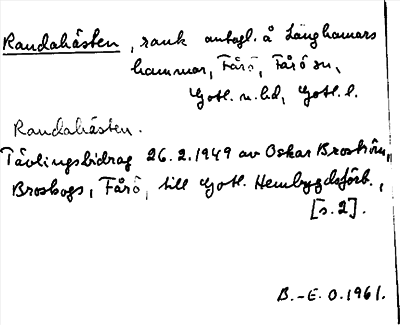 Randahästen, rauk antagl. å Länghamars
hammar, Fårö, Fårö sn,
Gotl. n. hd, Gotl. l.
Randahästen.
Tävlingsbidrag 26.2.1949 av Oskar Broström,
Broskogs, Fårö, till Gotl. Hembygdsförb.,
[s. 2].
B.-E. O. 1961.